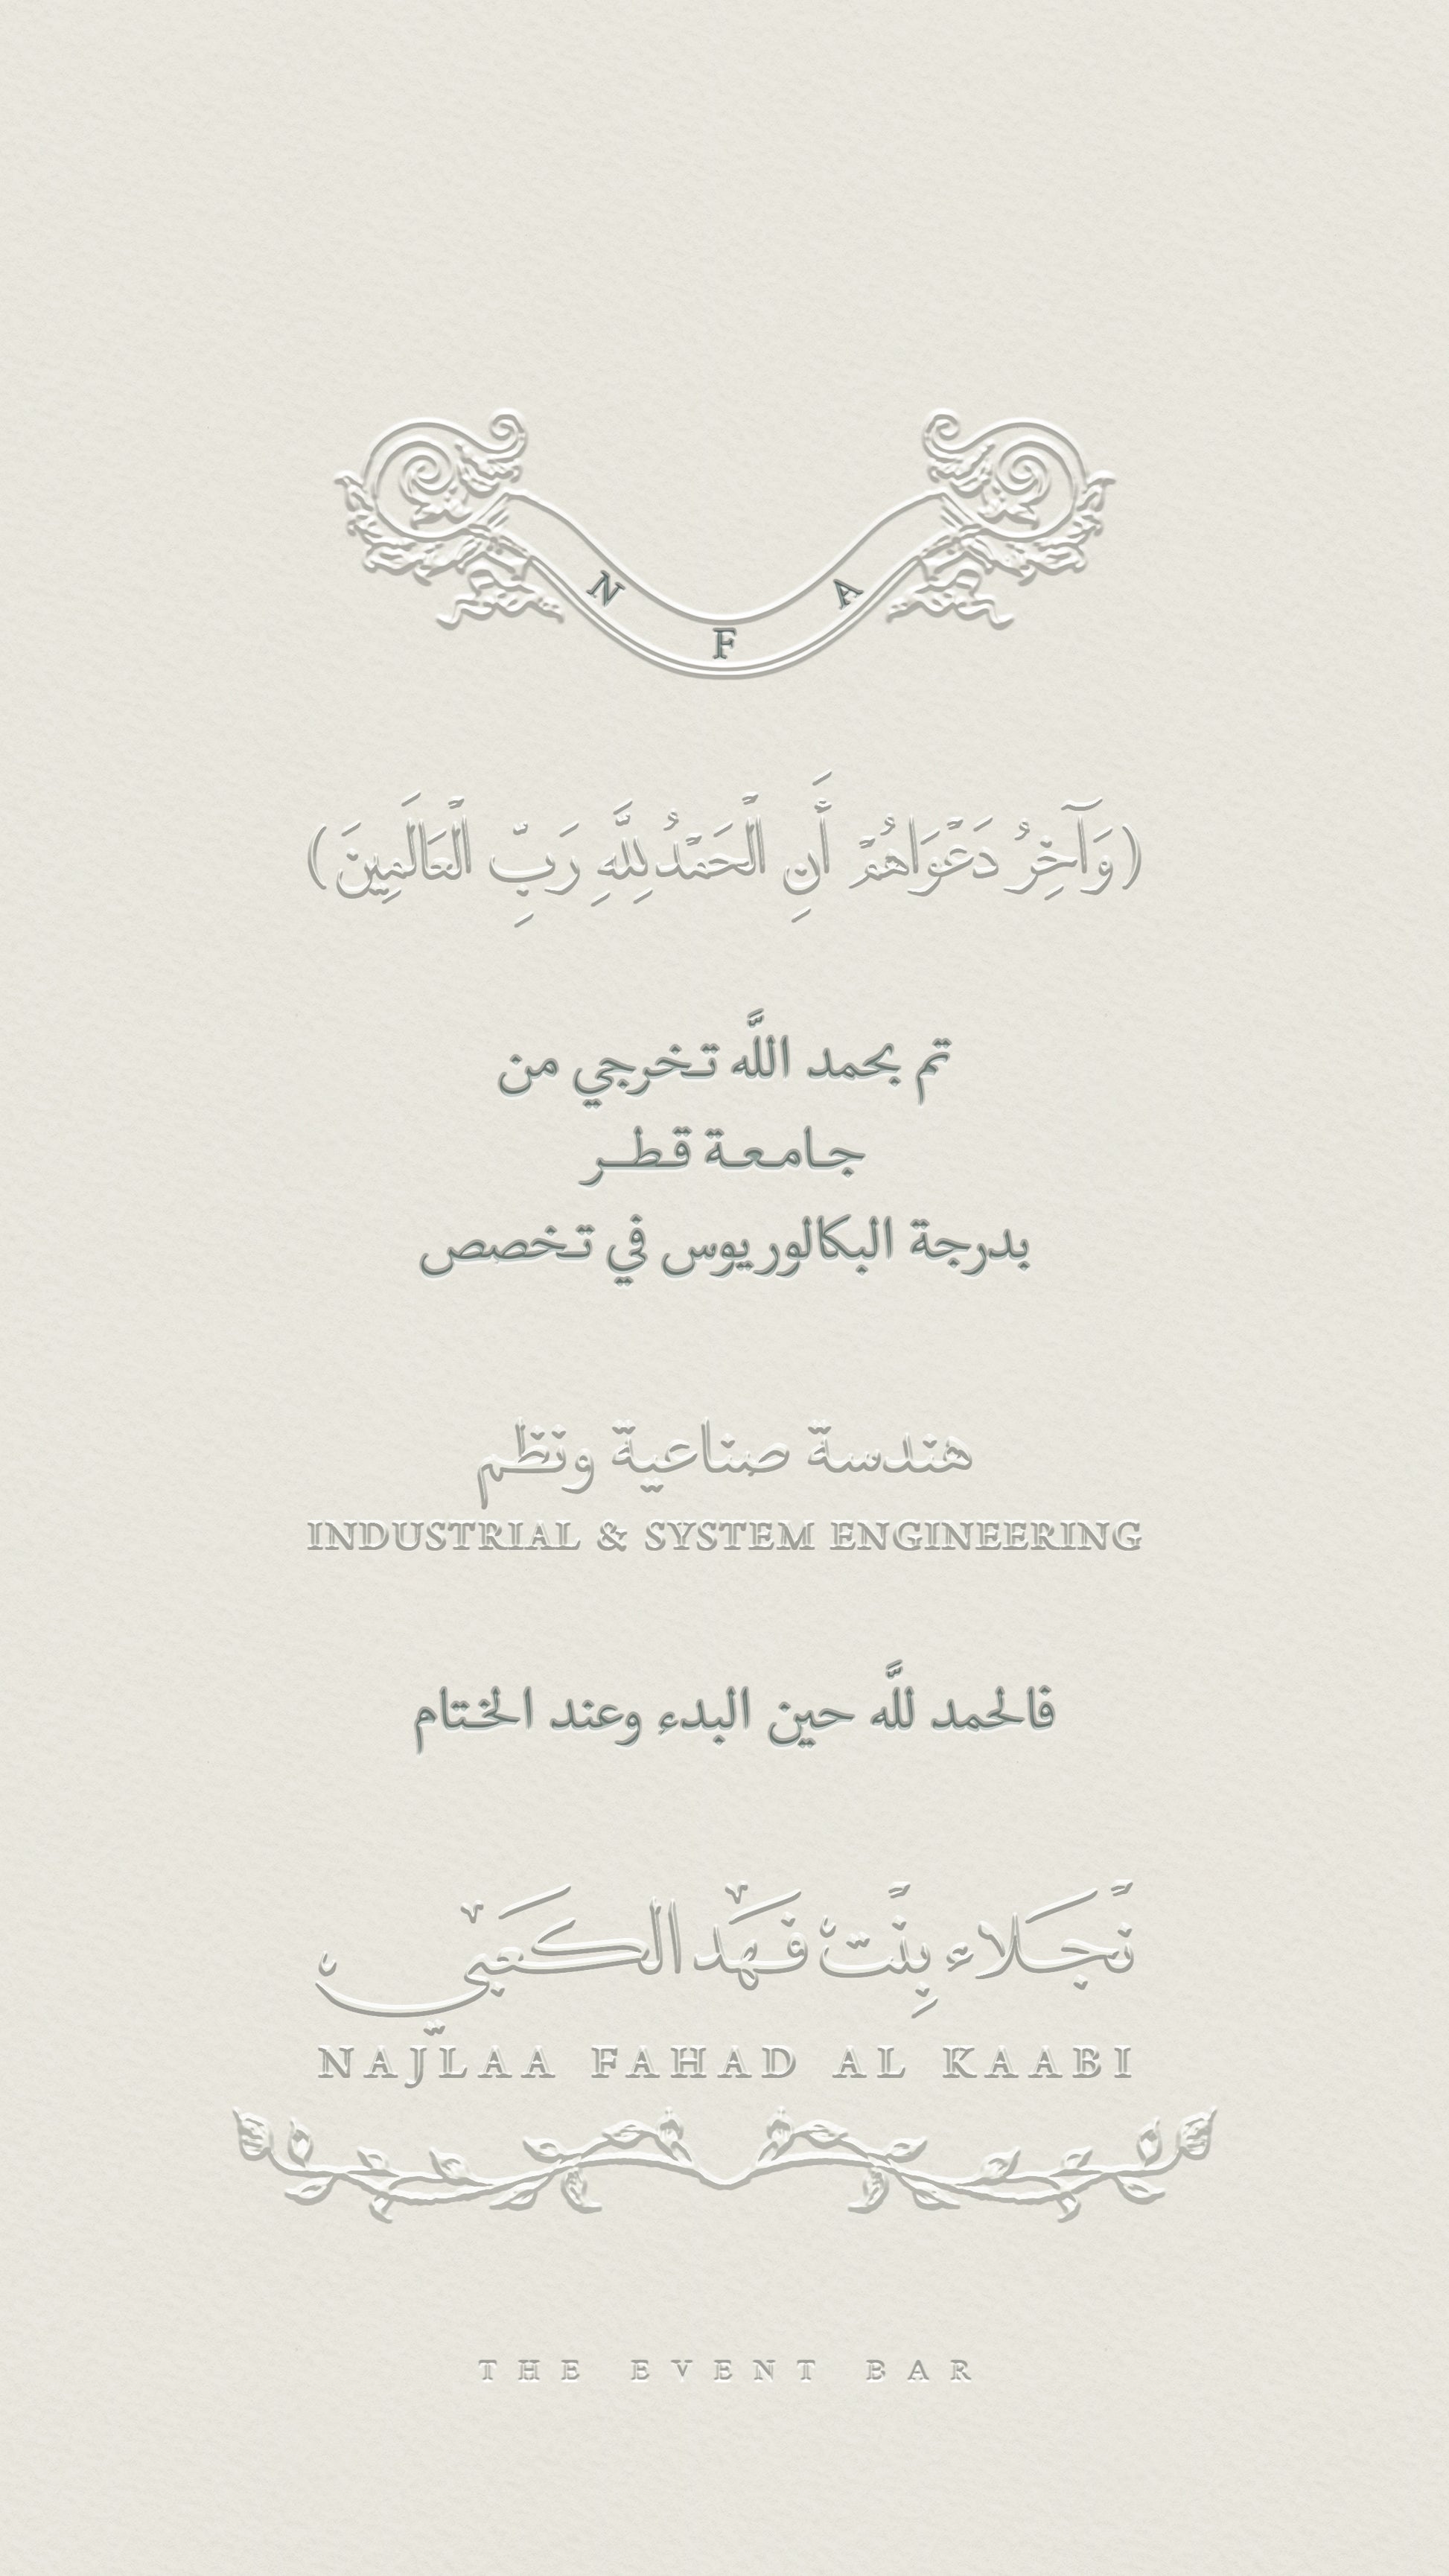 N F A
(وَآخِرُ دَعْوَاهُمْ أَنِ الْحَمْدُ لِلَّهِ رَبِّ الْعَالَمِينَ)
تم بحمد اللَّه تخرجي من
جامعة قطر
بدرجة البكالوريوس في تخصص
هندسة صناعية ونظم
INDUSTRIAL & SYSTEM ENGINEERING
فالحمد للَّه حين البدء وعند الختام
نَجْلاء بِنْت فَهَد الكَعبي
NAJLAA FAHAD AL KAABI
THE EVENT BAR